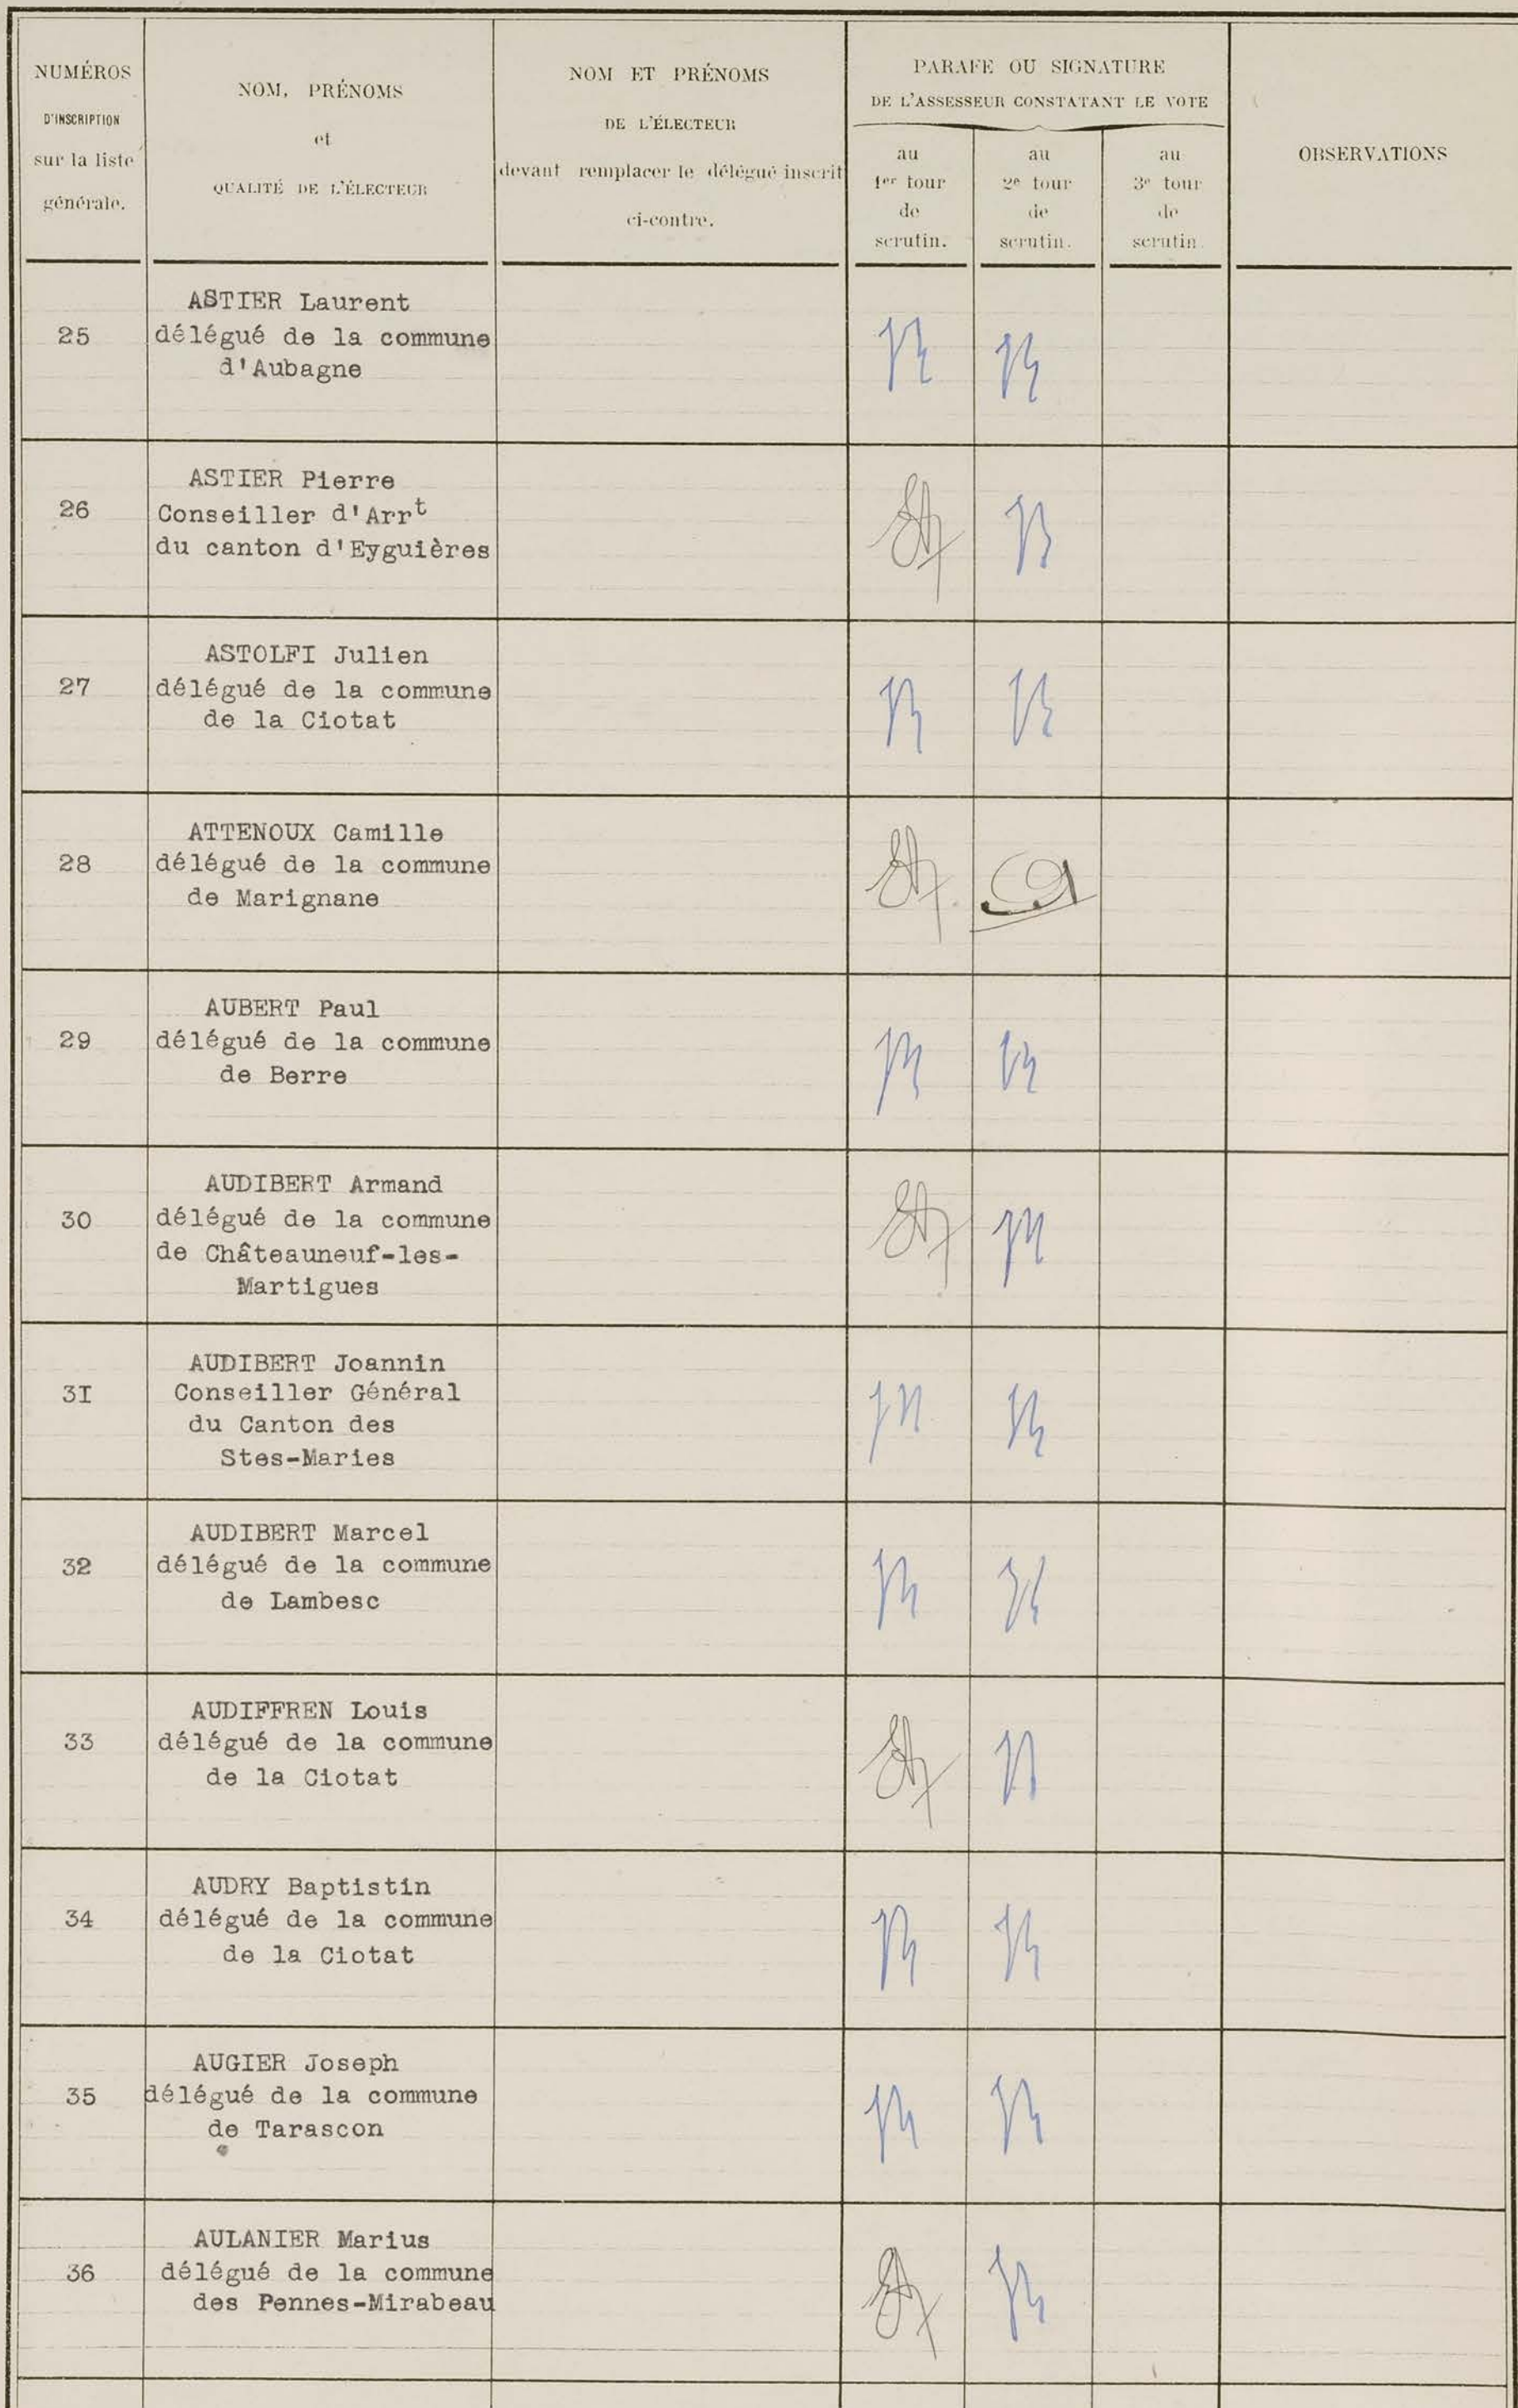 NUMÉROS
D'INSCRIPTION
sur la liste
générale.
NOM, PRÉNOMS
et
QUALITÉ DE L'ÉLECTEUR
NOM ET PRÉNOMS
DE L'ÉLECTEUR
devant remplacer le délégué inscrit
ci-contre.
PARAFE OU SIGNATURE
DE L'ASSESSEUR CONSTATANT LE VOTE
au
1er tour
de
scrutin.
au
2e tour
de
scrutin.
au
3e tour
de
scrutin.
OBSERVATIONS
25
ASTIER Laurent
délégué de la commune
d'Aubagne
26
ASTIER Pierre
Conseiller d'Arrt
du canton d'Eyguières
27
ASTOLFI Julien
délégué de la commune
de la Ciotat
28
ATTENOUX Camille
délégué de la commune
de Marignane
29
AUBERT Paul
délégué de la commune
de Berre
30
AUDIBERT Armand
délégué de la commune
de Châteauneuf-les-
Martigues
3I
AUDIBERT Joannin
Conseiller Général
du Canton des
Stes-Maries
32
AUDIBERT Marcel
délégué de la commune
de Lambesc
33
AUDIFFREN Louis
délégué de la commune
de la Ciotat
34
AUDRY Baptistin
délégué de la commune
de la Ciotat
35
AUGIER Joseph
délégué de la commune
de Tarascon
36
AULANIER Marius
délégué de la commune
des Pennes-Mirabeau